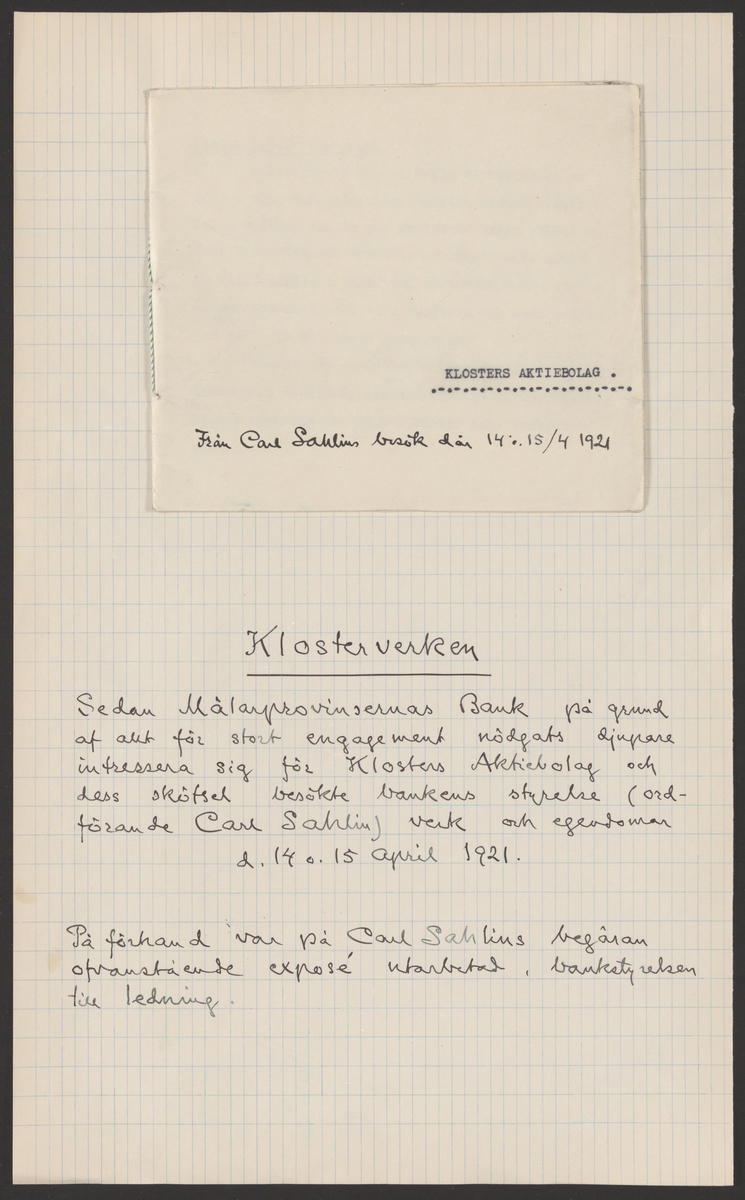 KLOSTERS AKTIEBOLAG .
Från Carl Sahlins besök där 14 o. 15/4 1921
Klosterverken
Sedan Mälarprovinsernas Bank på grund
af allt för stort engagement nödgats djupare
intressera sig för Klosters Aktiebolag och
dess skötsel besökte bankens styrelse (ord-
förande Carl Sahlin) verk och egendomar
d. 14 o. 15 april 1921.
På förhand var på Carl Sahlins begäran
ofvanstående exposé utarbetad, bankstyrelsen
till ledning.